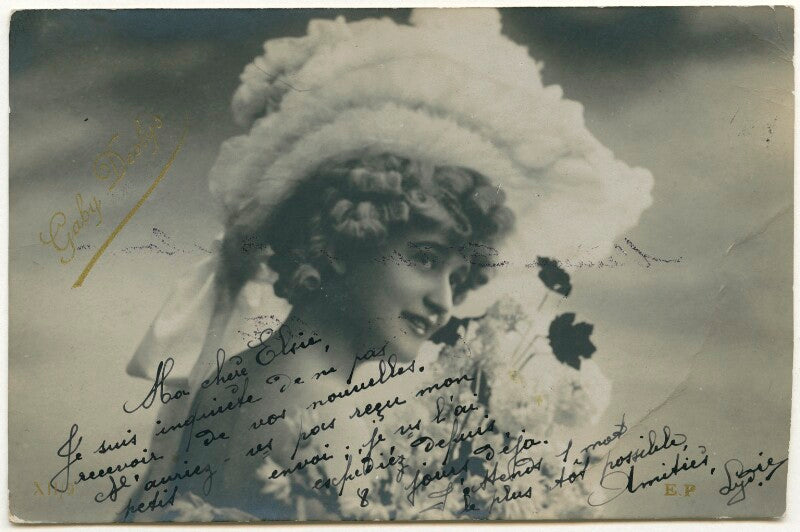 Gaby Deslys
Ma chère Elsie,
Je suis inquiète de ne pas
recevoir de vos nouvelles.
N'auriez-vs pas reçu mon
petit envoi; je vs l'ai
expédiez depuis
8 jours déja.
J'attends 1 mot
le plus tôt possible,
Amitiés,
Lydie
E.P